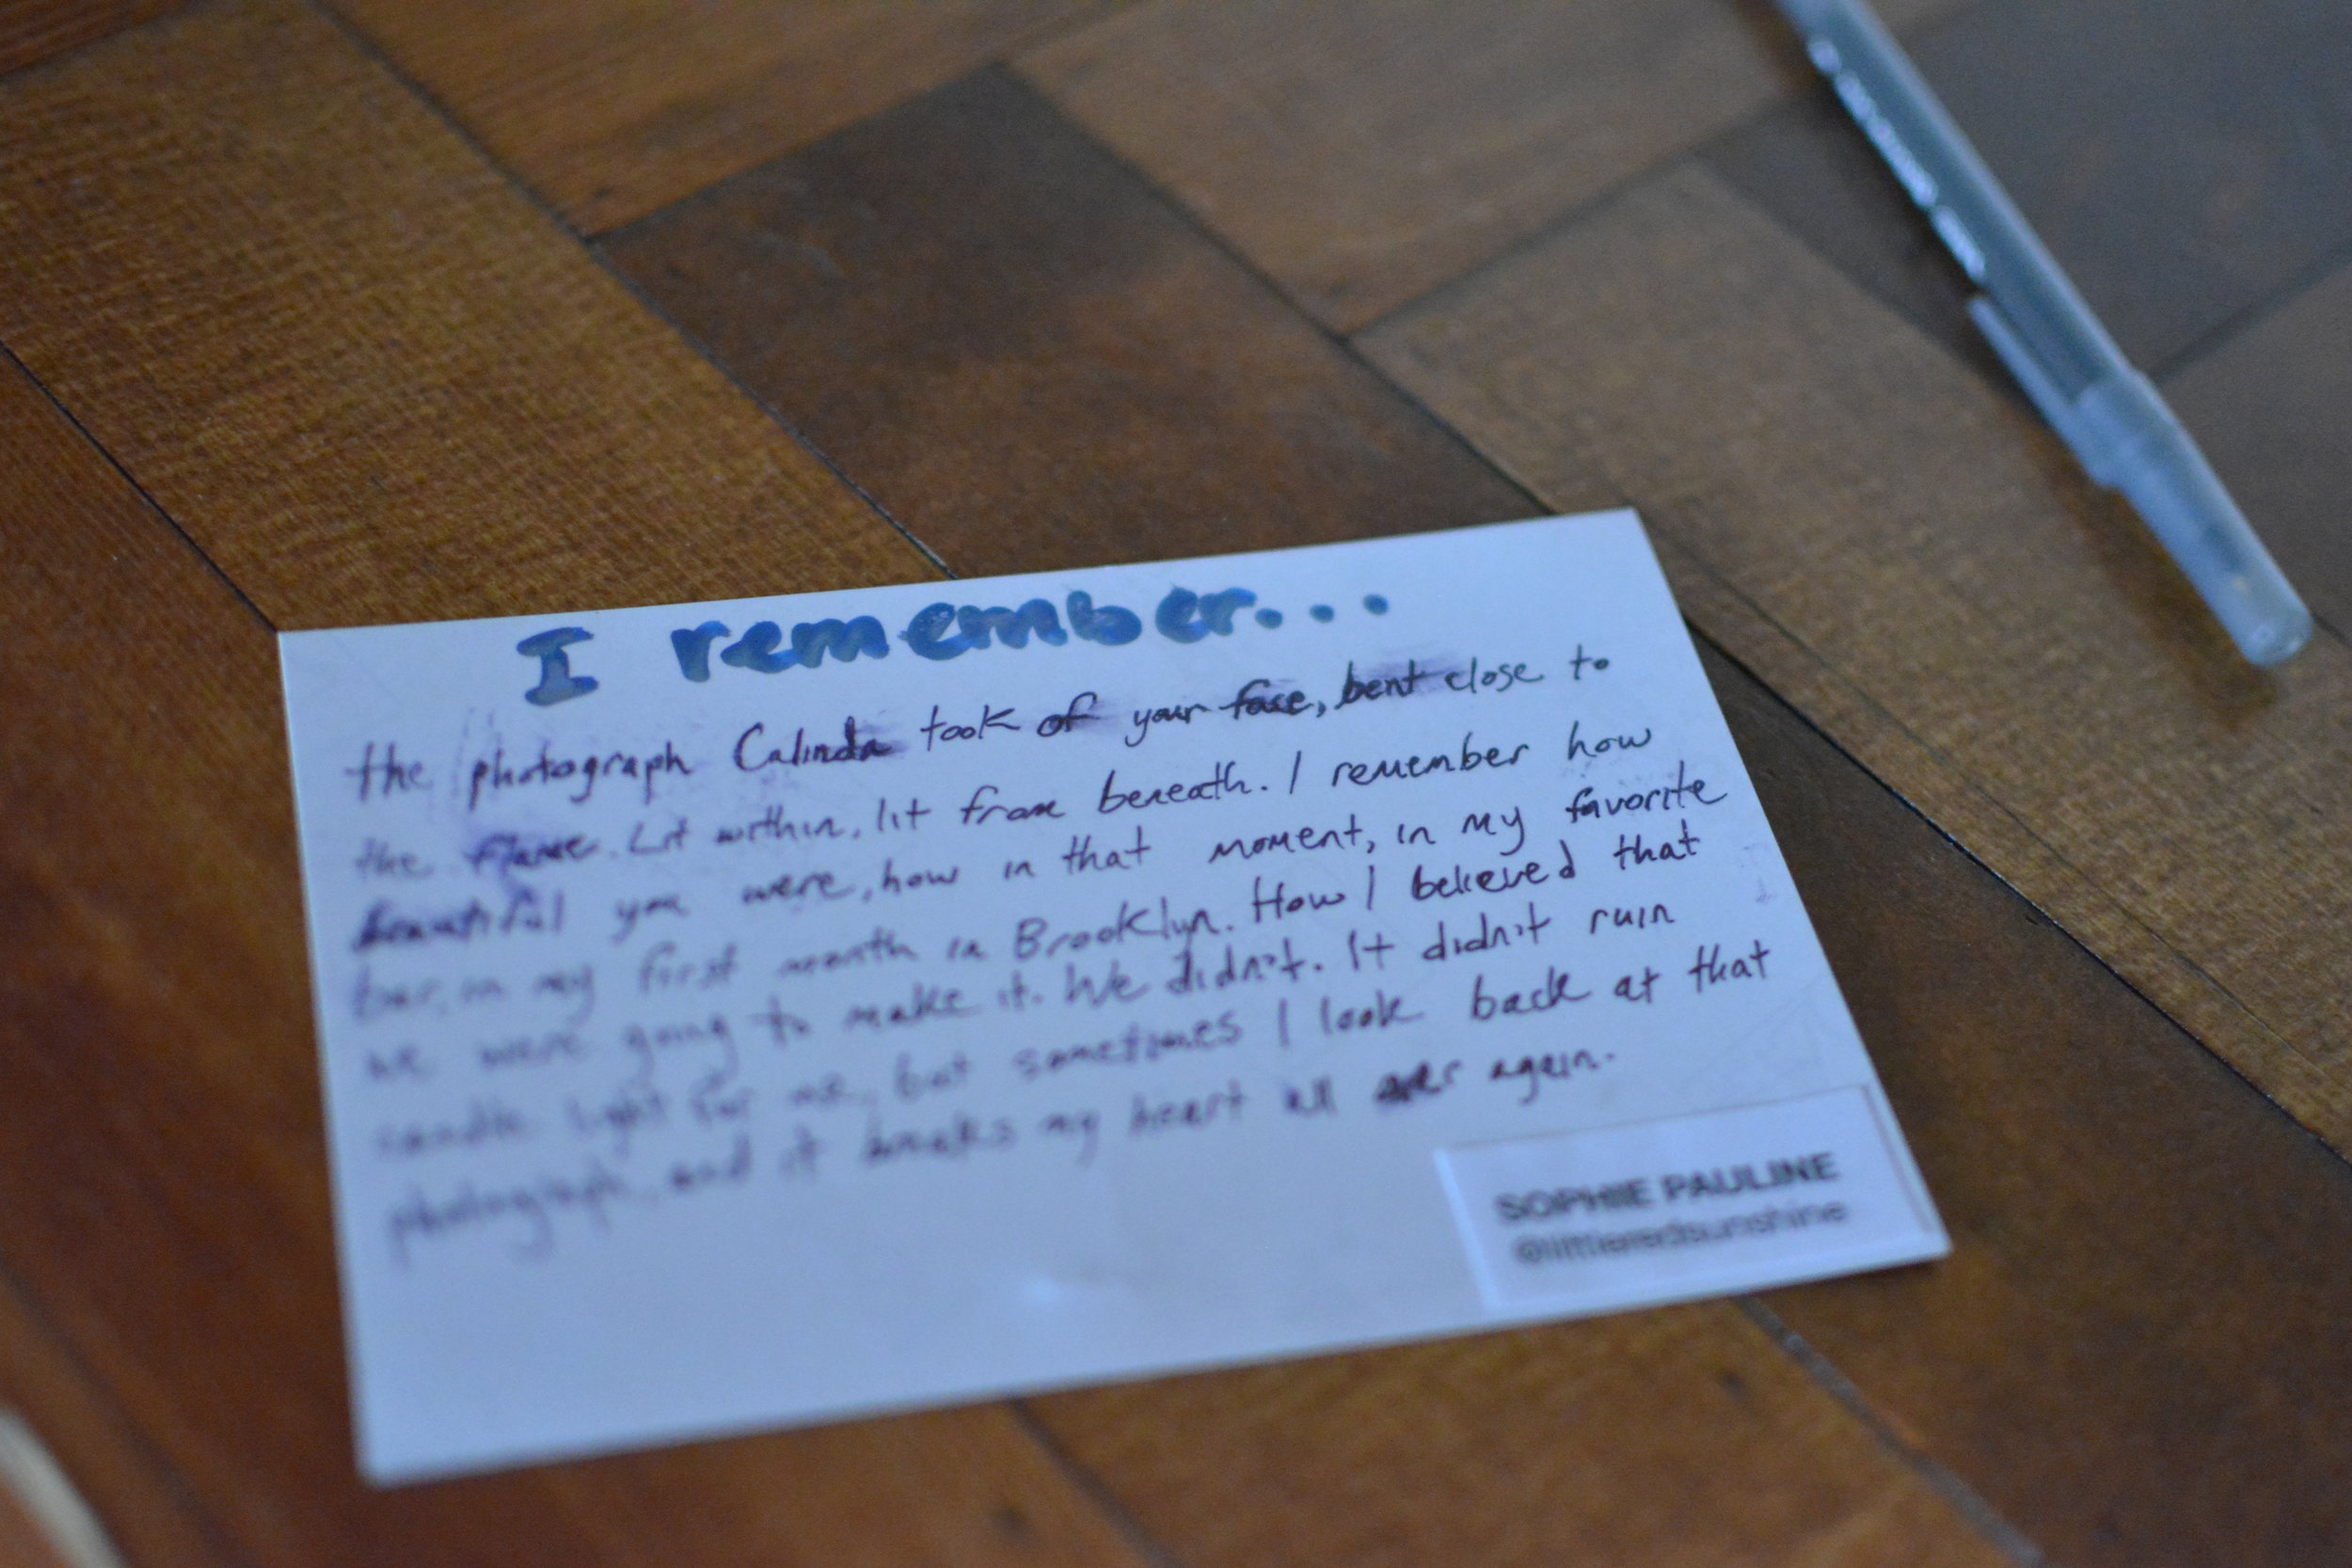 I remember...
the photograph Calinda took of your face, bent close to
the flame. Lit within, lit from beneath. I remember how
beautiful you were, how in that moment, in my favorite
bar, in my first month in Brooklyn. How I believed that
we were going to make it. We didn't. It didn't ruin
candle light for me, but sometimes I look back at that
photograph, and it breaks my heart all over again.
SOPHIE PAULINE
@littleredsunshine